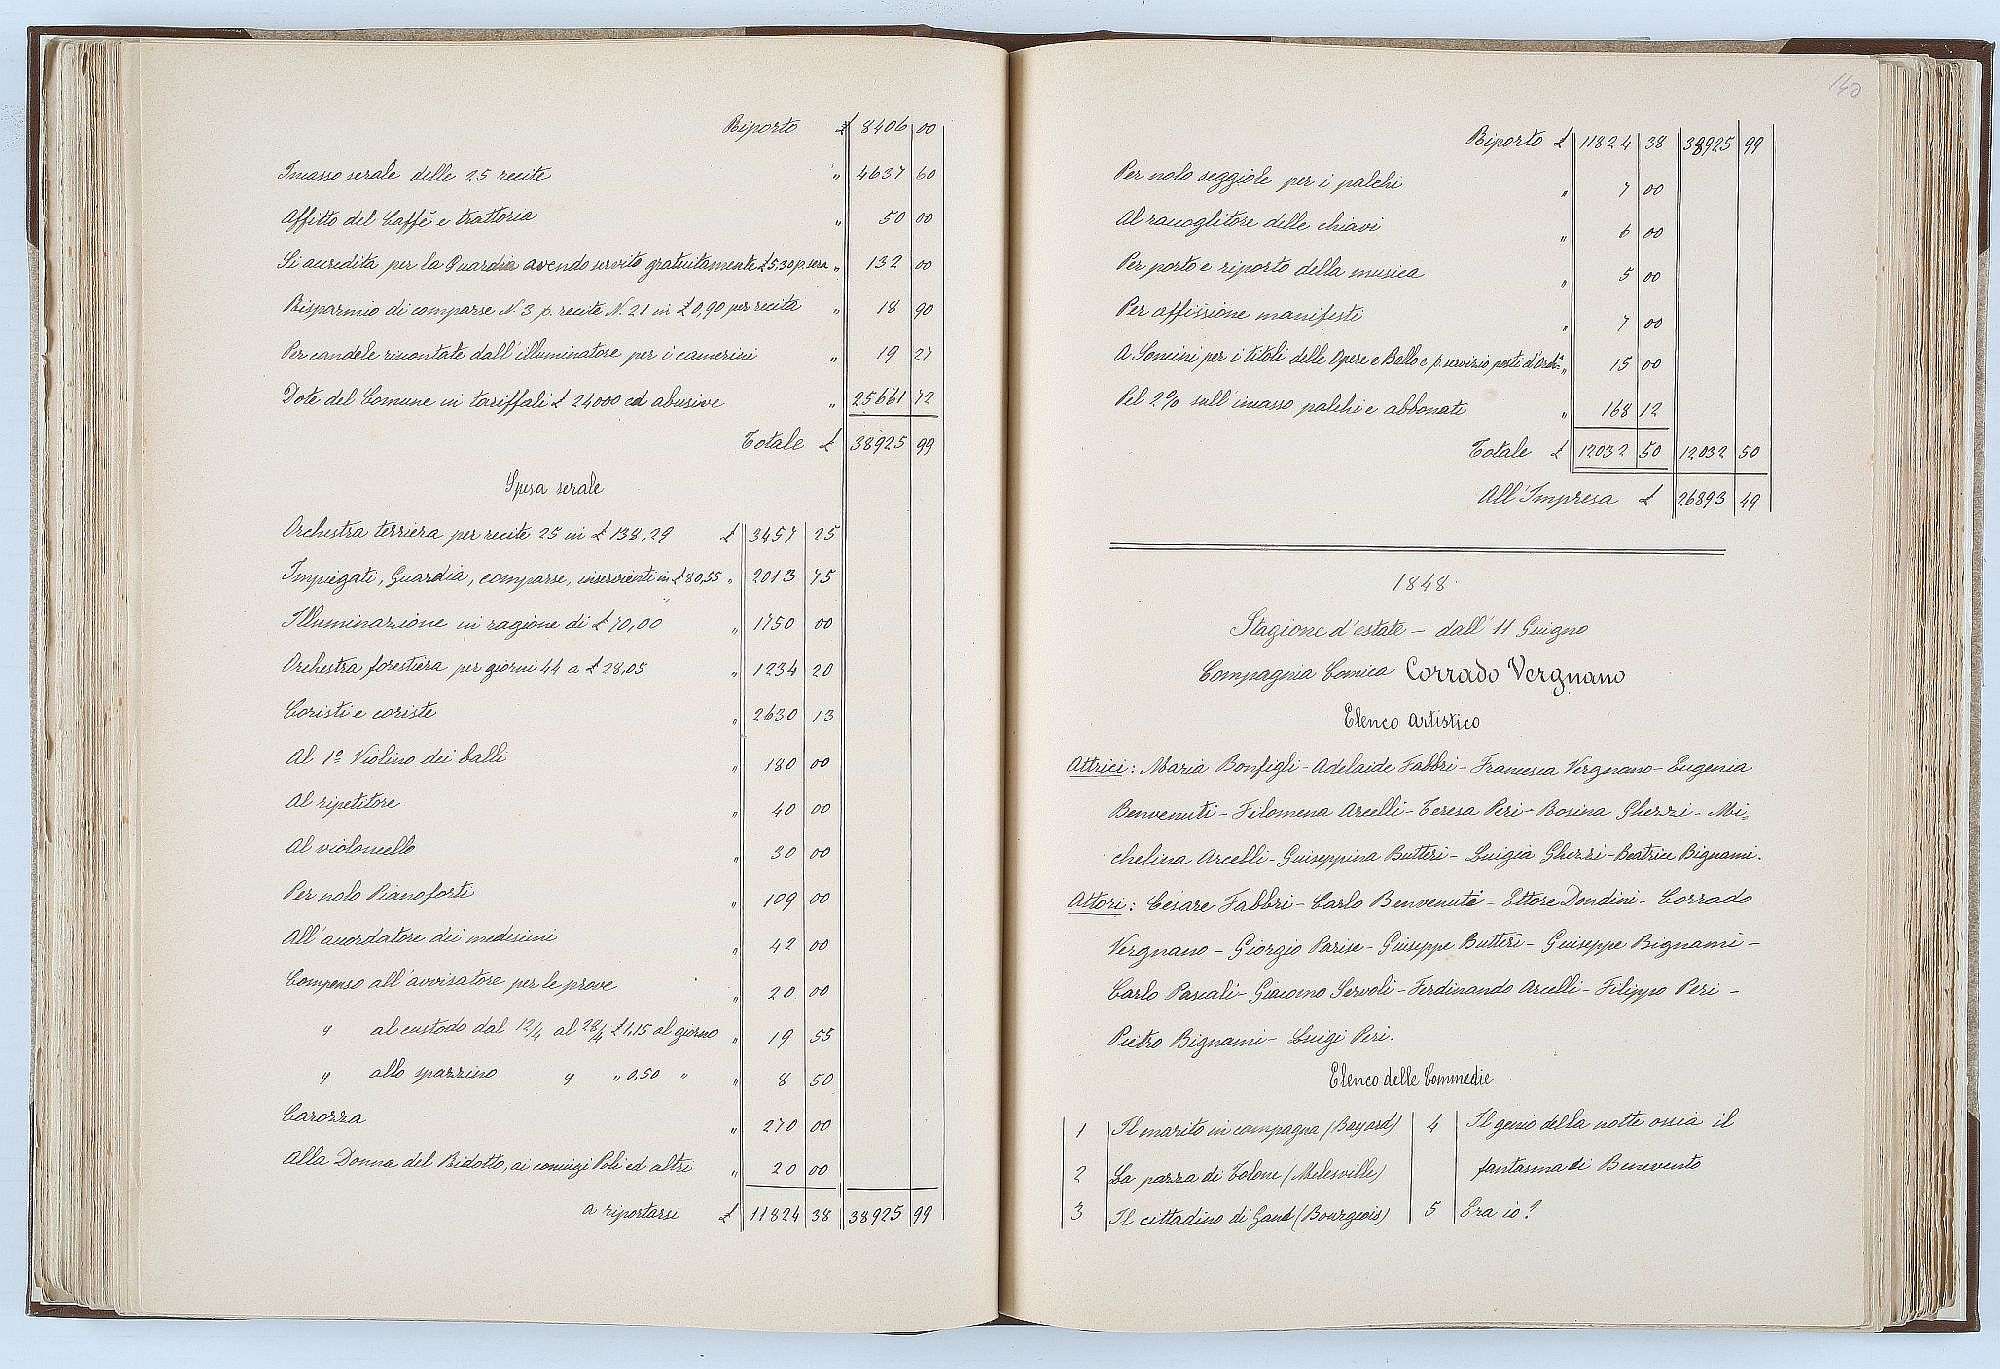 Riporto £ 8406 00
Incasso serale delle 25 recite " 4637 60
Affitto del Caffè e trattoria " 50 00
Si accredita per la Guardia avendo servito gratuitamente £ 5,30 p. sera " 132 00
Risparmio di comparse N. 3 p. recite N. 21 in £ 0,90 per recita " 18 90
Per candele riscontate dall'illuminatore per i camerini " 19 27
Dote del Comune in tariffali £ 24000 ed abusive " 25661 72
Totale £ 38925 99
Spesa serale
Orchestra terriera per recite 25 in £ 138,29 £ 3457 25
Impiegati, Guardia, comparse, inservienti in £ 80,55 " 2013 75
Illuminazione in ragione di £ 70,00 " 1750 00
Orchestra forestiera per giorni 44 a £ 28,05 " 1234 20
Coristi e coriste " 2630 13
Al 1º Violino dei balli " 180 00
Al ripetitore " 40 00
Al violoncello " 30 00
Per nolo Pianoforti " 109 00
All'accordatore dei medesimi " 42 00
Compenso all'avvisatore per le prove " 20 00
" al custode dal 12/4 al 28/4 £ 1,15 al giorno " 19 55
" allo spazzino " " 0,50 " " 8 50
Carozza " 270 00
Alla Donna del Ridotto, ai coniugi Poli ed altri " 20 00
a riportarsi £ 11824 38 38925 99
140
Riporto £ 11824 38 38925 99
Per nolo seggiole per i palchi " 7 00
Al raccoglitore delle chiavi " 6 00
Per porto e riporto della musica " 5 00
Per affissione manifesti " 7 00
A Soncini per i titoli delle Opere e Ballo e p. servizio posti d'Ord. " 15 00
Pel 2% sull'incasso palchi e abbonati " 168 12
Totale £ 12032 50 12032 50
All'Impresa £ 26893 49
1848.
Stagione d'estate - dall'11 Giugno
Compagnia Comica Corrado Vergnano
Elenco artistico
Attrici: Maria Bonfigli - Adelaide Fabbri - Francesca Vergnano - Eugenia
Benvenuti - Filomena Arcelli - Teresa Peri - Rosina Ghezzi - Mi-
chelina Arcelli - Guiseppina Butteri - Luigia Ghezzi - Beatrice Bignami.
Attori: Cesare Fabbri - Carlo Benvenuti - Ettore Dondini - Corrado
Vergnano - Giorgio Parise - Guiseppe Butteri - Guiseppe Bignami -
Carlo Pascali - Giacomo Servoli - Ferdinando Arcelli - Filippo Peri -
Pietro Bignami - Luigi Peri.
Elenco delle Commedie
1 Il marito in campagna (Bayard)
2 La pazza di Tolone (Melesville)
3 Il cittadino di Gand (Bourgeois)
4 Il genio della notte ossia il
fantasma di Benevento
5 Era io?